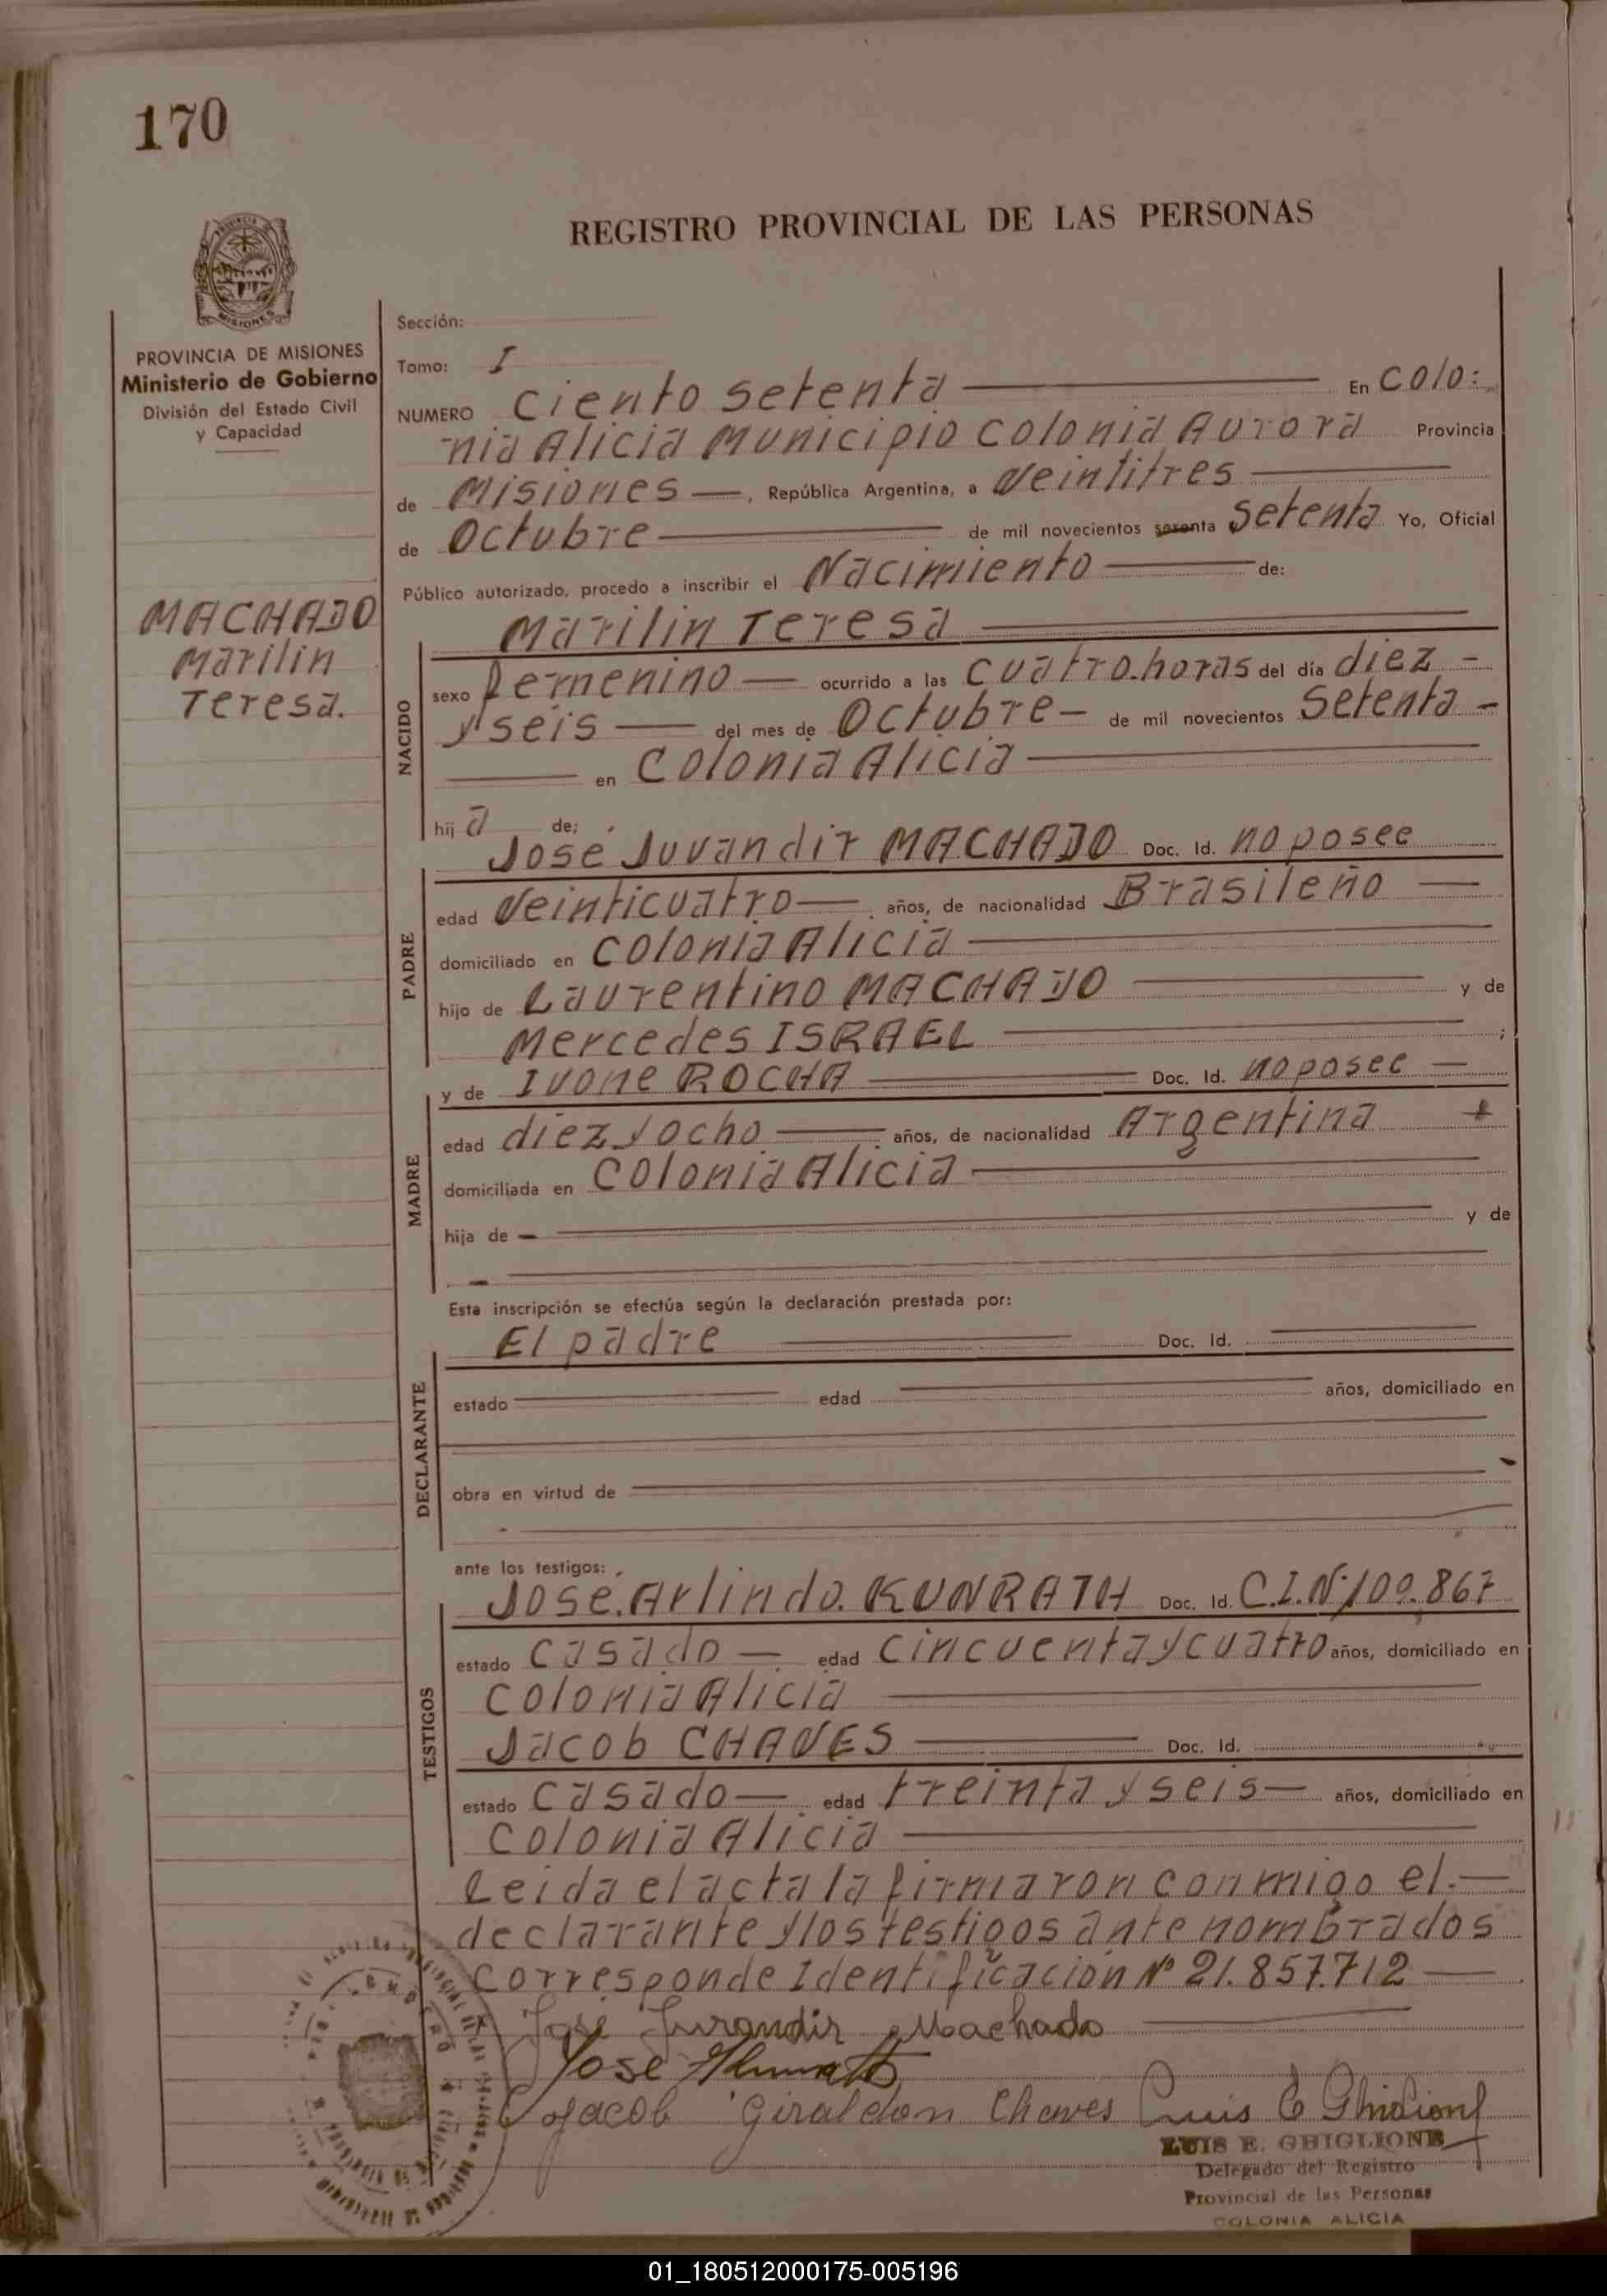 170
REGISTRO PROVINCIAL DE LAS PERSONAS
PROVINCIA DE MISIONES
Ministerio de Gobierno
División del Estado Civil
y Capacidad
MACHADO
Marilin
Teresa.
Sección:
Tomo: I
NUMERO Ciento setenta En Colo:
nia Alicia Municipio Colonia Aurora Provincia
de Misiones, República Argentina, a Veintitres
de Octubre de mil novecientos sesenta Setenta Yo, Oficial
Público autorizado, procedo a inscribir el Nacimiento de:
NACIDO
Marilin Teresa
sexo femenino ocurrido a las cuatro horas del día diez -
y seis del mes de Octubre - de mil novecientos Setenta -
en Colonia Alicia
hija de;
PADRE
José Juvandir MACHADO Doc. Id. no posee
edad Veinticuatro años, de nacionalidad Brasileño
domiciliado en Colonia Alicia
hijo de Laurentino MACHADO y de
Mercedes ISRAEL ;
MADRE
y de Ivone ROCHA Doc. Id. no posee
edad diez y ocho años, de nacionalidad Argentina
domiciliada en Colonia Alicia
hija de y de
Esta inscripción se efectúa según la declaración prestada por:
DECLARANTE
El padre Doc. Id.
estado edad años, domiciliado en
obra en virtud de
ante los testigos:
TESTIGOS
José. Arlindo. KUNRATH Doc. Id. C.I.Nº 109.867
estado Casado edad Cincuenta y cuatro años, domiciliado en
Colonia Alicia
Jacob CHAVES Doc. Id.
estado Casado edad treinta y seis años, domiciliado en
Colonia Alicia
Leida el acta la firmaron conmigo el.
declarante y los testigos ante nombrados
Corresponde Identificación Nº 21.857.712
José Jurandir Machado
Jose
Jacob Giraldon Chaves Luis E Ghiglione
LUIS E. GHIGLIONE
Delegado del Registro
Provincial de las Personas
COLONIA ALICIA
01_180512000175-005196